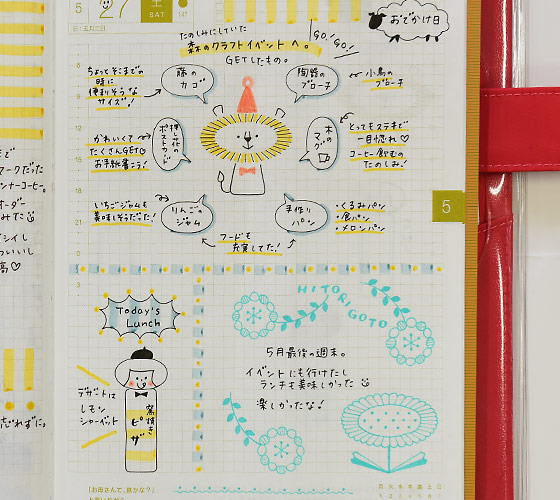 5
27
土
SAT
おでかけ日
たのしみにしていた
森のクラフトイベントへ。
GO! GO!
GETしたもの。
ちょっとそこまでの
時に
便利そうな
サイズ!
籐の
カゴ
陶器の
ブローチ
小鳥の
ブローチ
かわいくて
たくさんGET
お手紙書こう!
押し花の
ポストカード
木の
マグ
とってもステキで
一目惚れ♡
コーヒー飲むの
たのしみ!
いちごジャムも
美味しそうだった!
りんごの
ジャム
手作り
パン
・くるみパン
・食パン
・メロンパン
フードも
充実してた!
5
Today's
Lunch
デザートは
レモン
シャーベット
窯焼き
ピザ
HITORI GOTO
5月最後の週末。
イベントにも行けたし
ランチも美味しかった
楽しかったな!
マークだった
オーダー
忘れずに。
「お母さんで、良かな?」
月火水木金土日